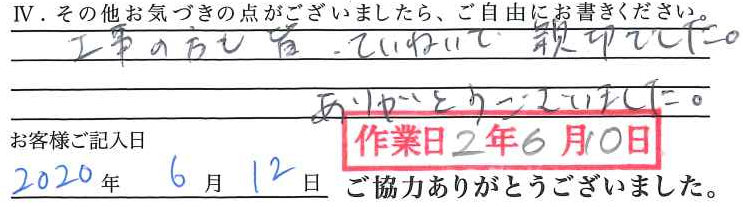 Ⅳ．その他お気づきの点がございましたら、ご自由にお書きください。
工事の方も皆、ていねいで 親切でした。
ありがとうございました。
お客様ご記入日
作業日 2年6月10日
2020年 6月 12日
ご協力ありがとうございました。